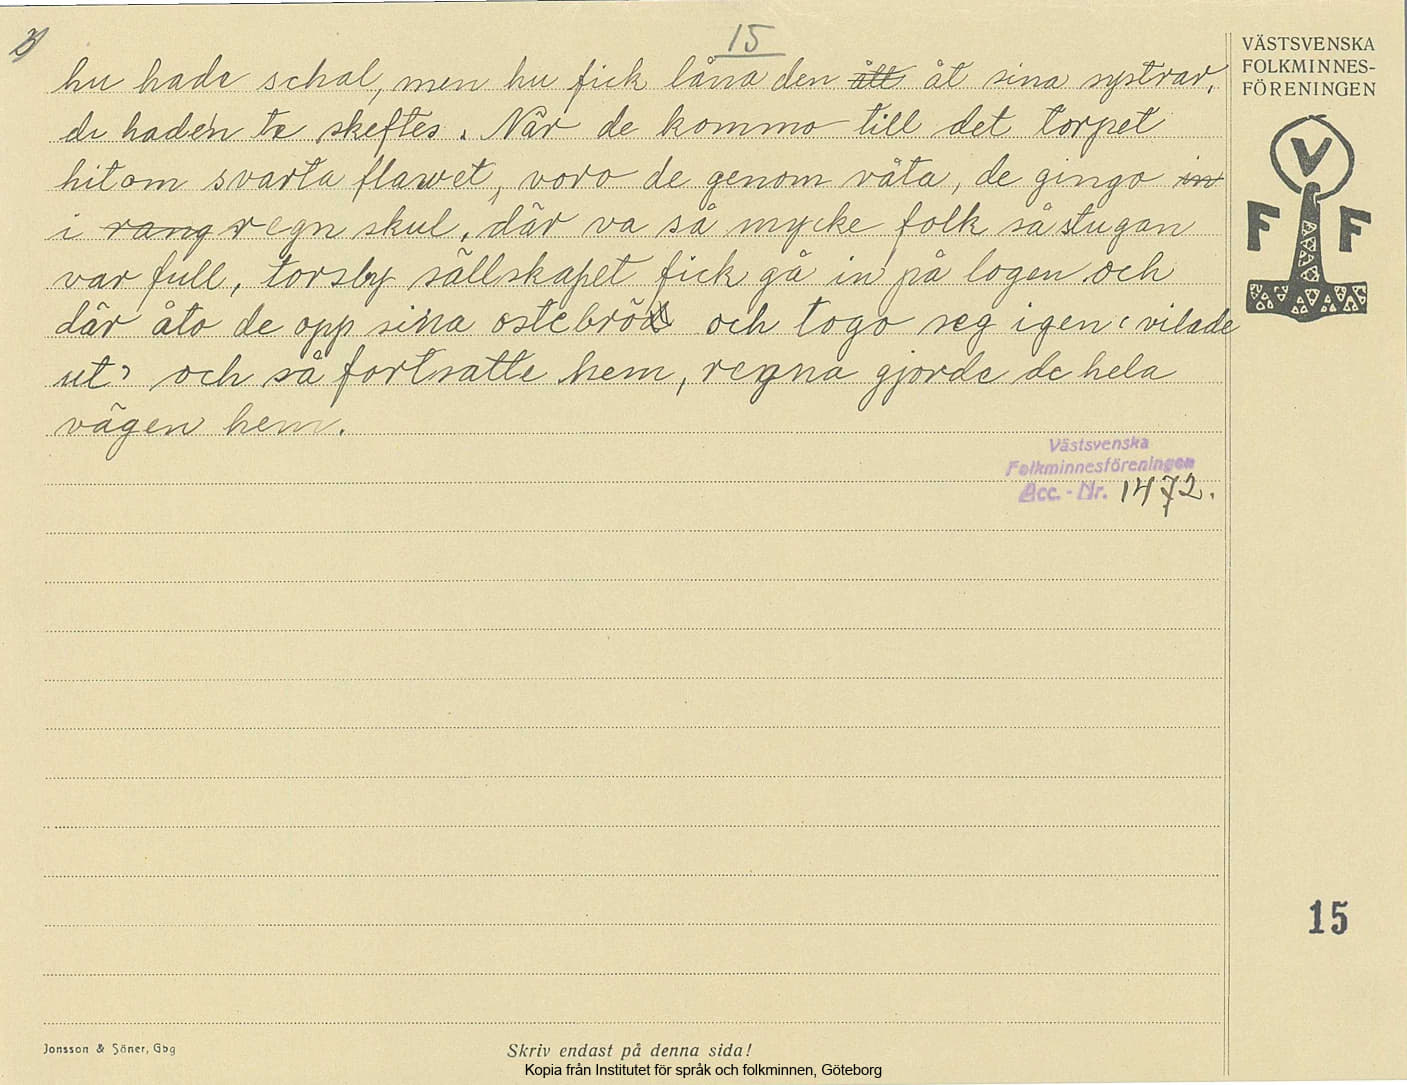 15
VÄSTSVENSKA
FOLKMINNES-
FÖRENINGEN
V
F F
hu hade schal, men hu fick låna den ått åt sina systrar,
de haden te skeftes. När de kommo till det torpet
hitom svarta flawet, voro de genom våta, de gingo in
i rang regn skul, där va så mycke folk så stugan
var full, torsby sällskapet fick gå in på logen och
där åto de opp sina ostebröd och togo seg igen (vilade
ut) och så fortsatte hem, regna gjorde de hela
vägen hem.
Västsvenska
Folkminnesföreningen
Acc. - Nr. 1472.
15
Jonsson & Söner, Gbg
Skriv endast på denna sida!
Kopia från Institutet för språk och folkminnen, Göteborg